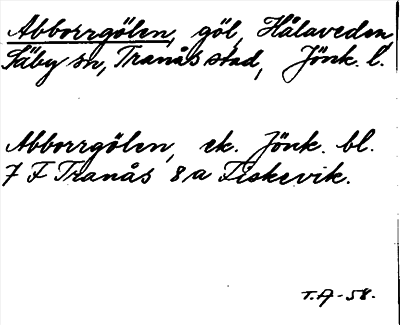 Abborrgölen, göl, Hålaveden,
Säby sn, Tranås stad, Jönk. l.
Abborrgölen, ek. Jönk. bl.
7 F Tranås 8 a Fiskevik.
T.A-58.